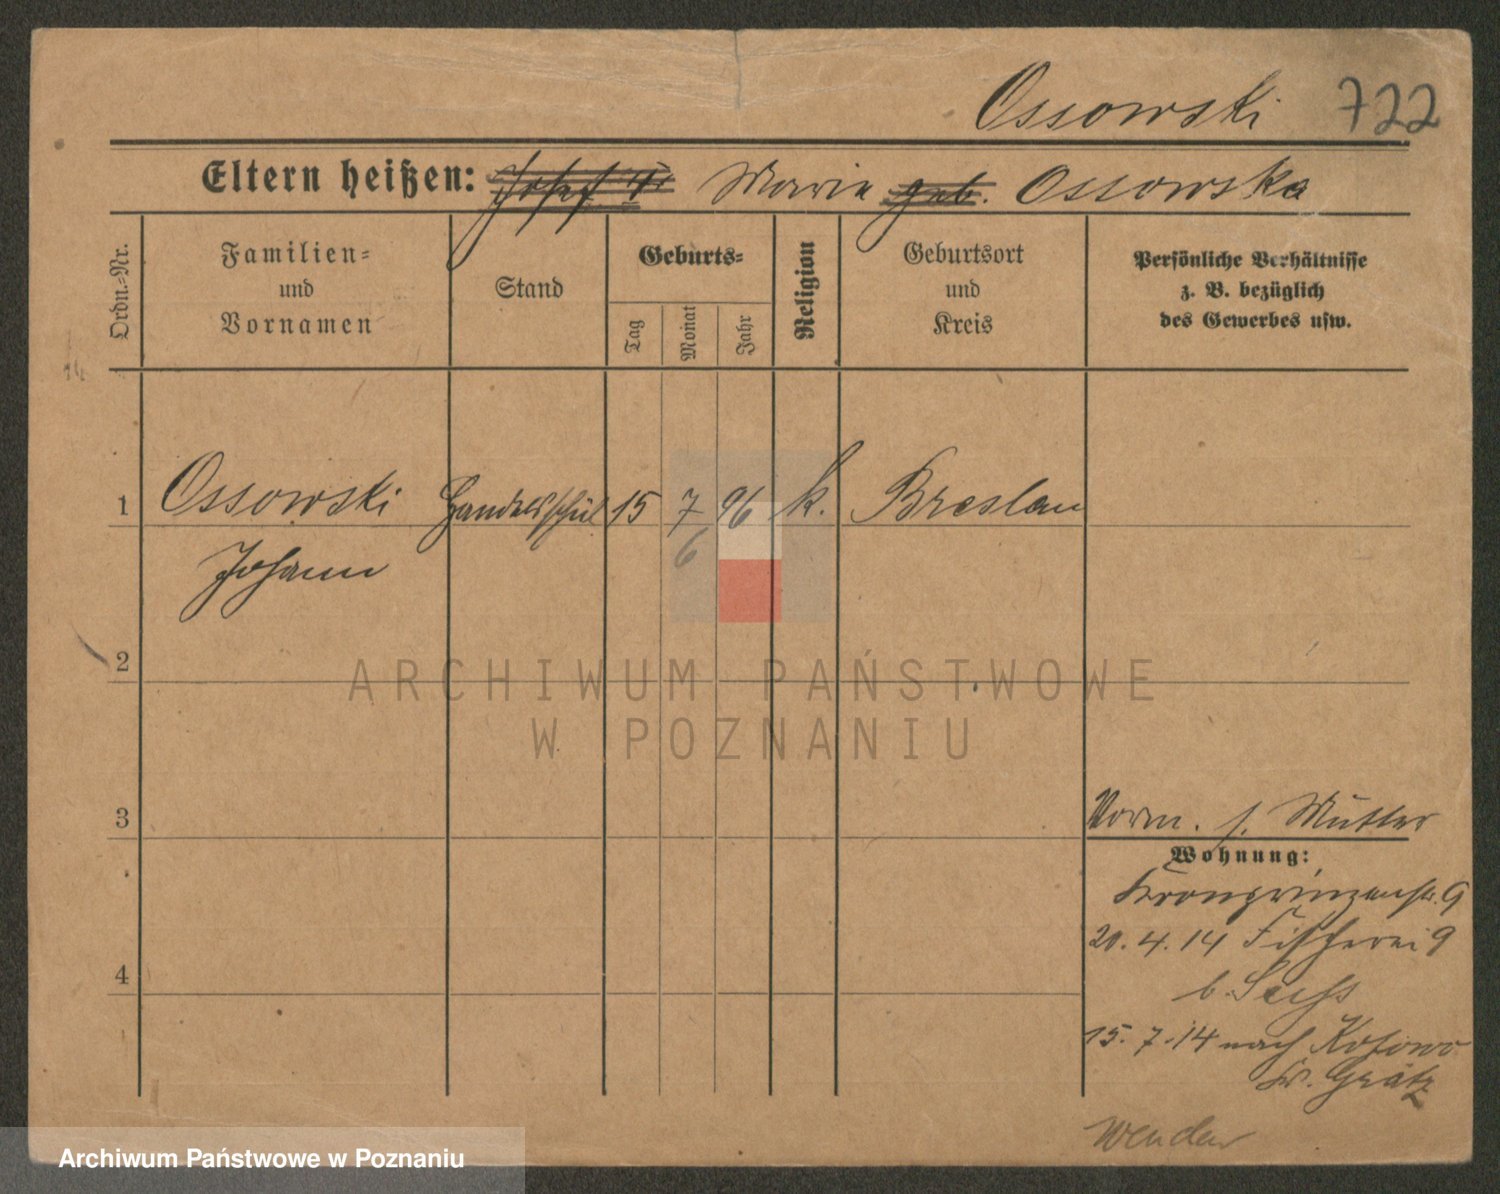 Ossowski 722
Eltern heißen: Josef u. Maria geb. Ossowska
Ordn.=Nr.
Familien=
und
Vornamen
Stand
Geburts=
Tag
Monat
Jahr
Religion
Geburtsort
und
Kreis
Persönliche Verhältnisse
z. B. bezüglich
des Gewerbes usw.
1 Ossowski Handelsschül 15 7 96 k. Breslau
6
Johann
2
ARCHIWUM PAŃSTWOWE
W POZNANIU
3
Vorm. s. Mutter
Wohnung:
Kronprinzenstr. 9
20. 4. 14 Fischerei 9
4
b.
15. 7. 14 nach
Kr. Grätz
wenden
Archiwum Państwowe w Poznaniu